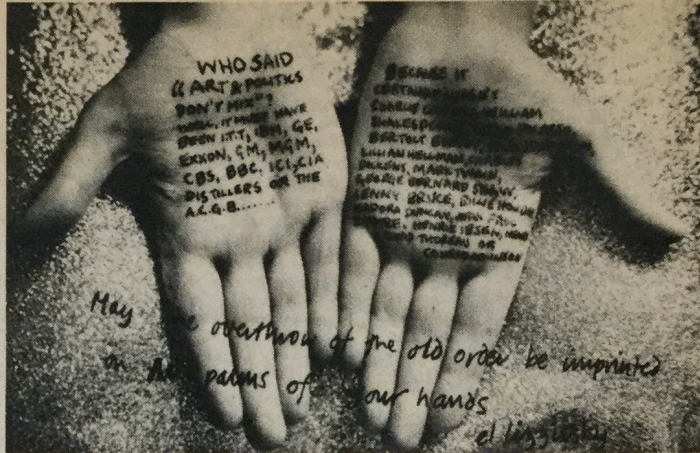 WHO SAID
"ART & POLITICS
DON'T MIX"?
WELL, IT MUST HAVE
BEEN I.T.T, IBM, GE,
EXXON, GM, MGM,
CBS, BBC, ICI, CIA
DISTILLERS OR THE
A.C.G.B.......
BECAUSE IT
CERTAINLY WASN'T
CHARLIE WILLIAM
BERTOLT
LILLIAN HELLMAN,
DICKENS, MARK TWAIN,
GEORGE BERNARD SHAW,
LENNY BRUCE, BILLIE HOLIDAY
ISADORA DUNCAN, JEAN PAUL
HENRIK IBSEN,
THOREAU OR
May overthrow of the old order be imprinted
on the palms of our hands
el lissitzky